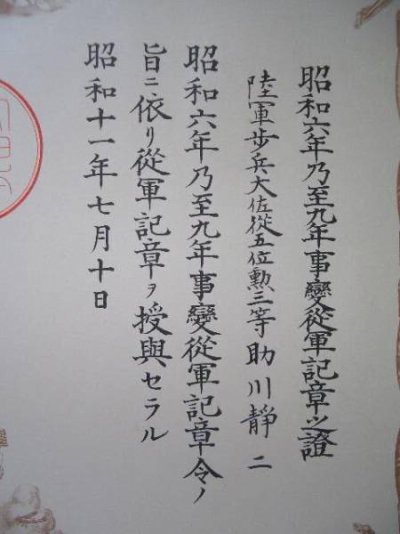 昭和六年乃至九年事變從軍記章之證
陸軍歩兵大佐從五位勲三等助川靜二
昭和六年乃至九年事變從軍記章令ノ
旨ニ依リ從軍記章ヲ授與セラル
昭和十一年七月十日